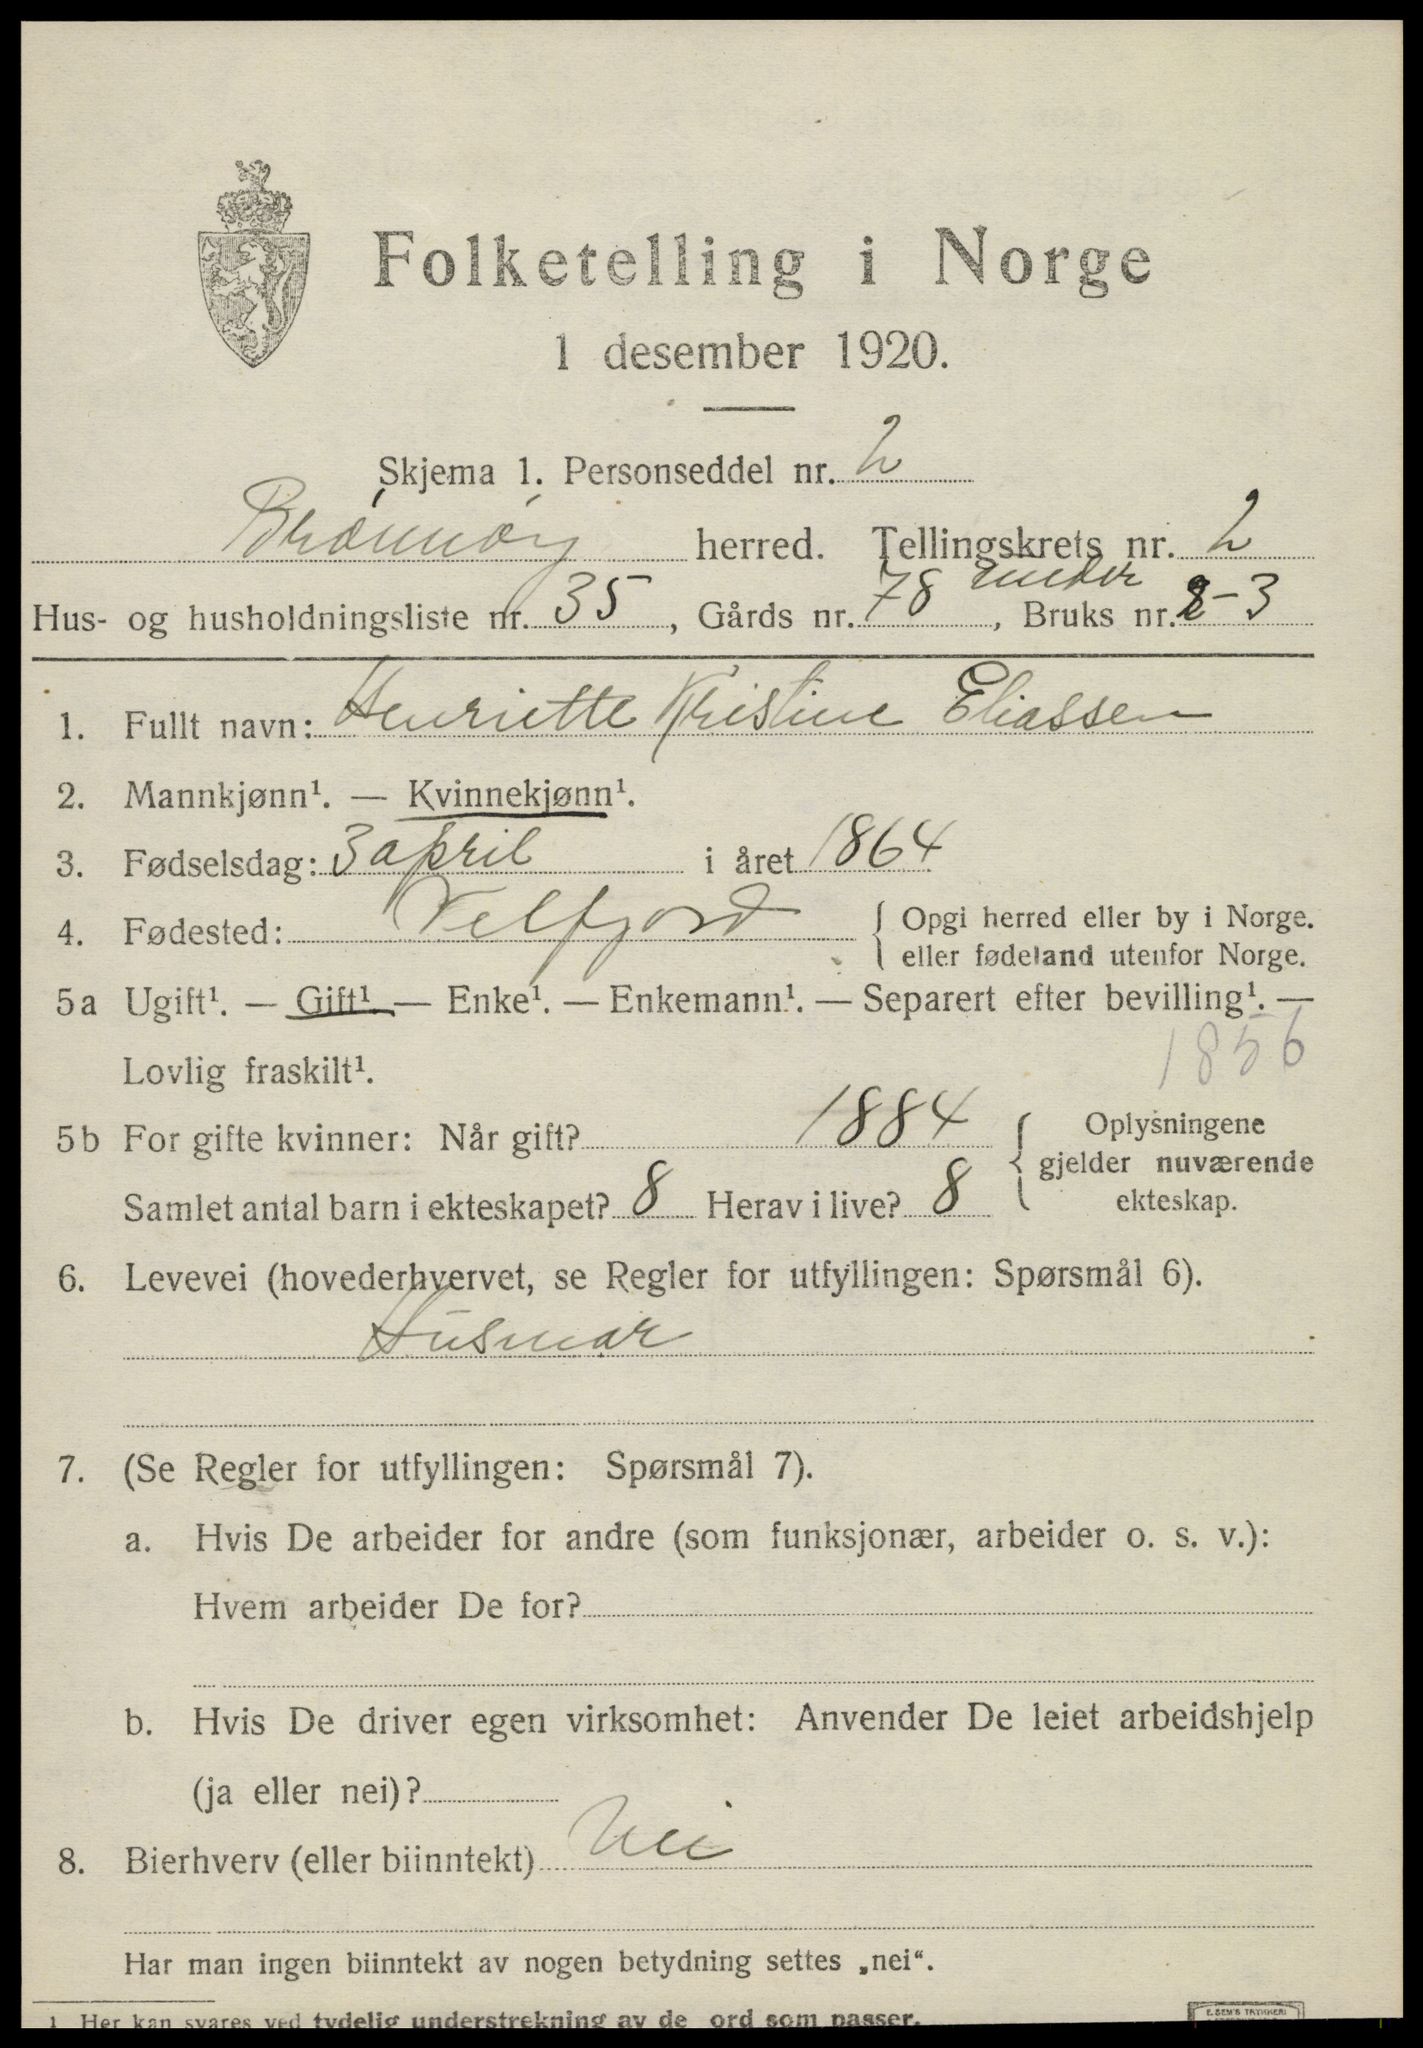 Folketelling i Norge
1 desember 1920.
Skjema 1. Personseddel nr. 2
Brønnøy herred. Tellingskrets nr. 2
Hus- og husholdningsliste nr. 35, Gårds nr. 78 under, Bruks nr. 2-3
1. Fullt navn: Henriette Kristine Eliassen
2. Mannkjønn¹. — Kvinnekjønn¹.
3. Fødselsdag: 3 april i året 1864
4. Fødested: Velfjord { Opgi herred eller by i Norge.
eller fødeland utenfor Norge.
5a Ugift¹. — Gift¹. — Enke¹. — Enkemann¹. — Separert efter bevilling¹. —
Lovlig fraskilt¹. 1856
5b For gifte kvinner: Når gift? 1884 { Oplysningene
gjelder nuværende
Samlet antal barn i ekteskapet? 8 Herav i live? 8 ekteskap.
6. Levevei (hovederhvervet, se Regler for utfyllingen: Spørsmål 6).
Husmor
7. (Se Regler for utfyllingen: Spørsmål 7).
a. Hvis De arbeider for andre (som funksjonær, arbeider o. s. v.):
Hvem arbeider De for?
b. Hvis De driver egen virksomhet: Anvender De leiet arbeidshjelp
(ja eller nei)?
8. Bierhverv (eller biinntekt) Nei
Har man ingen biinntekt av nogen betydning settes „nei“.
¹ Her kan svares ved tydelig understrekning av de ord som passer.
E. SEM'S TRYKKERI